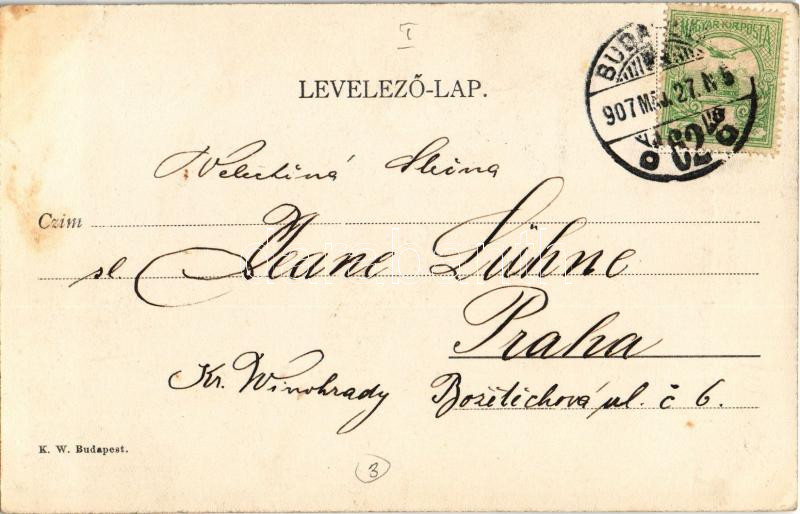 I
MAGYAR KIR. POSTA
BUDA
907 MÁJ. 27. N 5
62
LEVELEZŐ-LAP.
Velectěná Slečna
Czim
sl Jeane Lühne
Praha
Kr. Winohrady Bozětěchová ul. č 6.
K. W. Budapest.
3